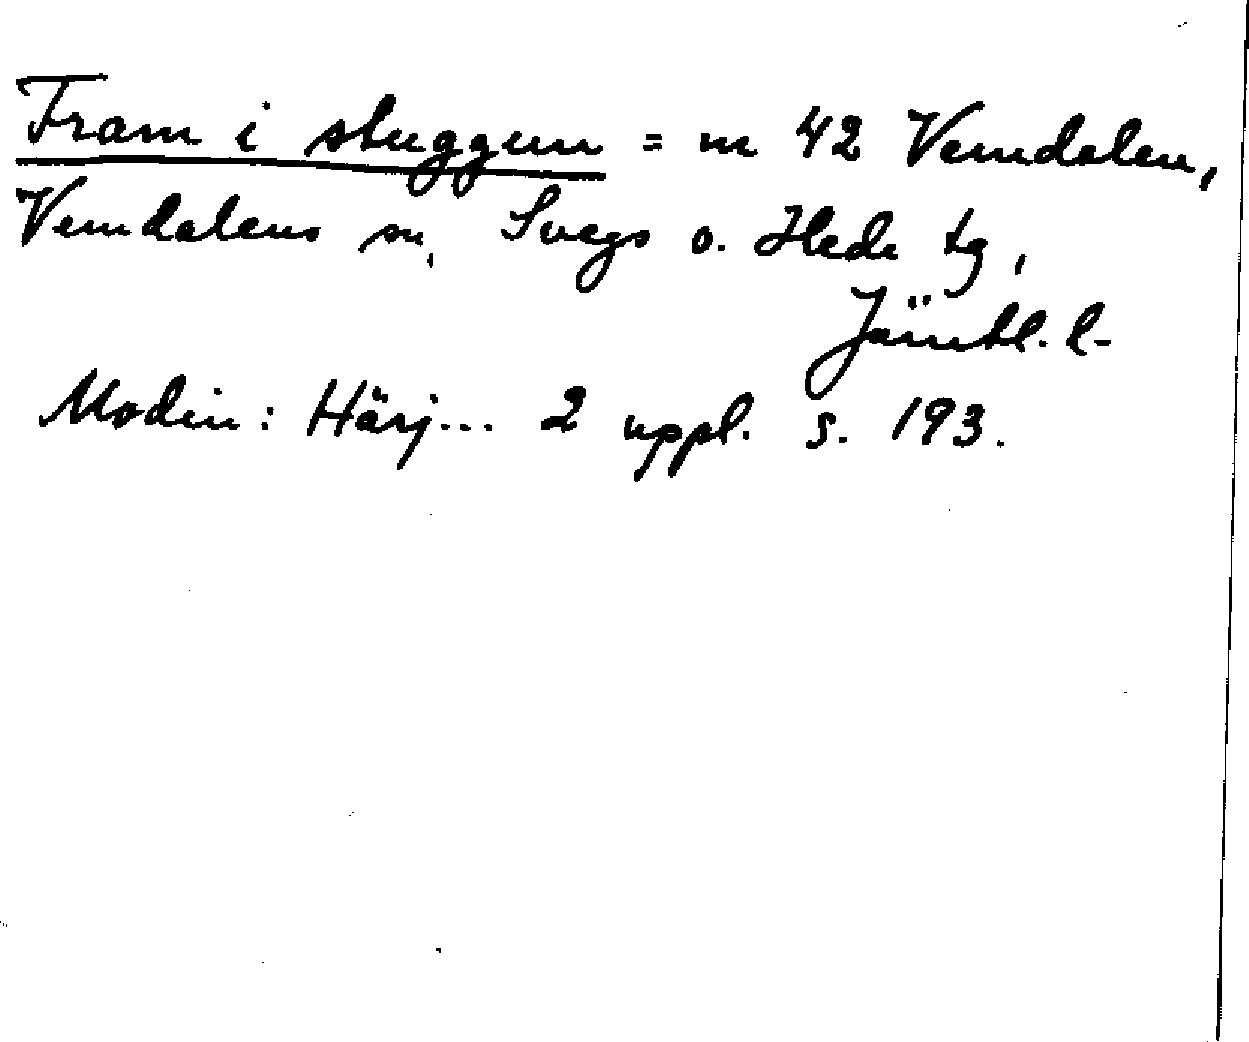 Fram i stuggun = m 42 Vemdalen,
Vemdalens sn, Svegs o. Hede tg,
Jämtl. l.
Modin: Härj... 2 uppl. s. 193.